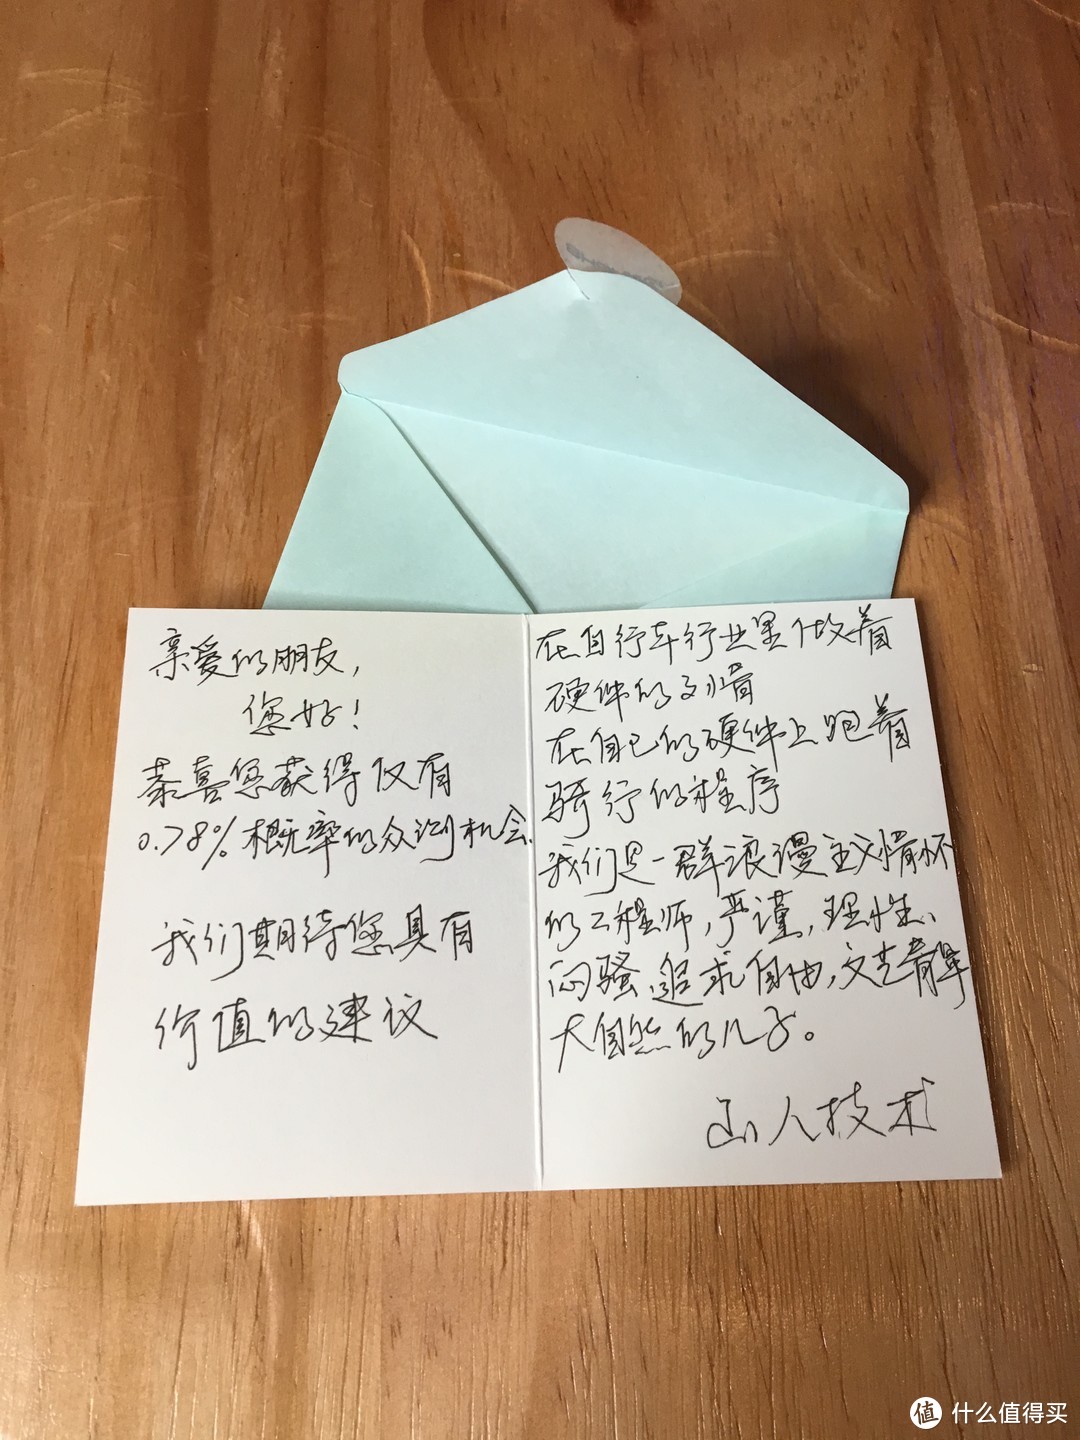 亲爱的朋友,
您好!
恭喜您获得仅有
0.78%概率的众测机会.
我们期待您具有
价值的建议
在自行车行业里做着
硬件的文情
在自己的硬件上跑着
骑行的程序
我们是一群浪漫主义情怀
的工程师,严谨,理性、
闷骚,追求自由,文艺青年
大自然的儿子。
山人技术
值 什么值得买